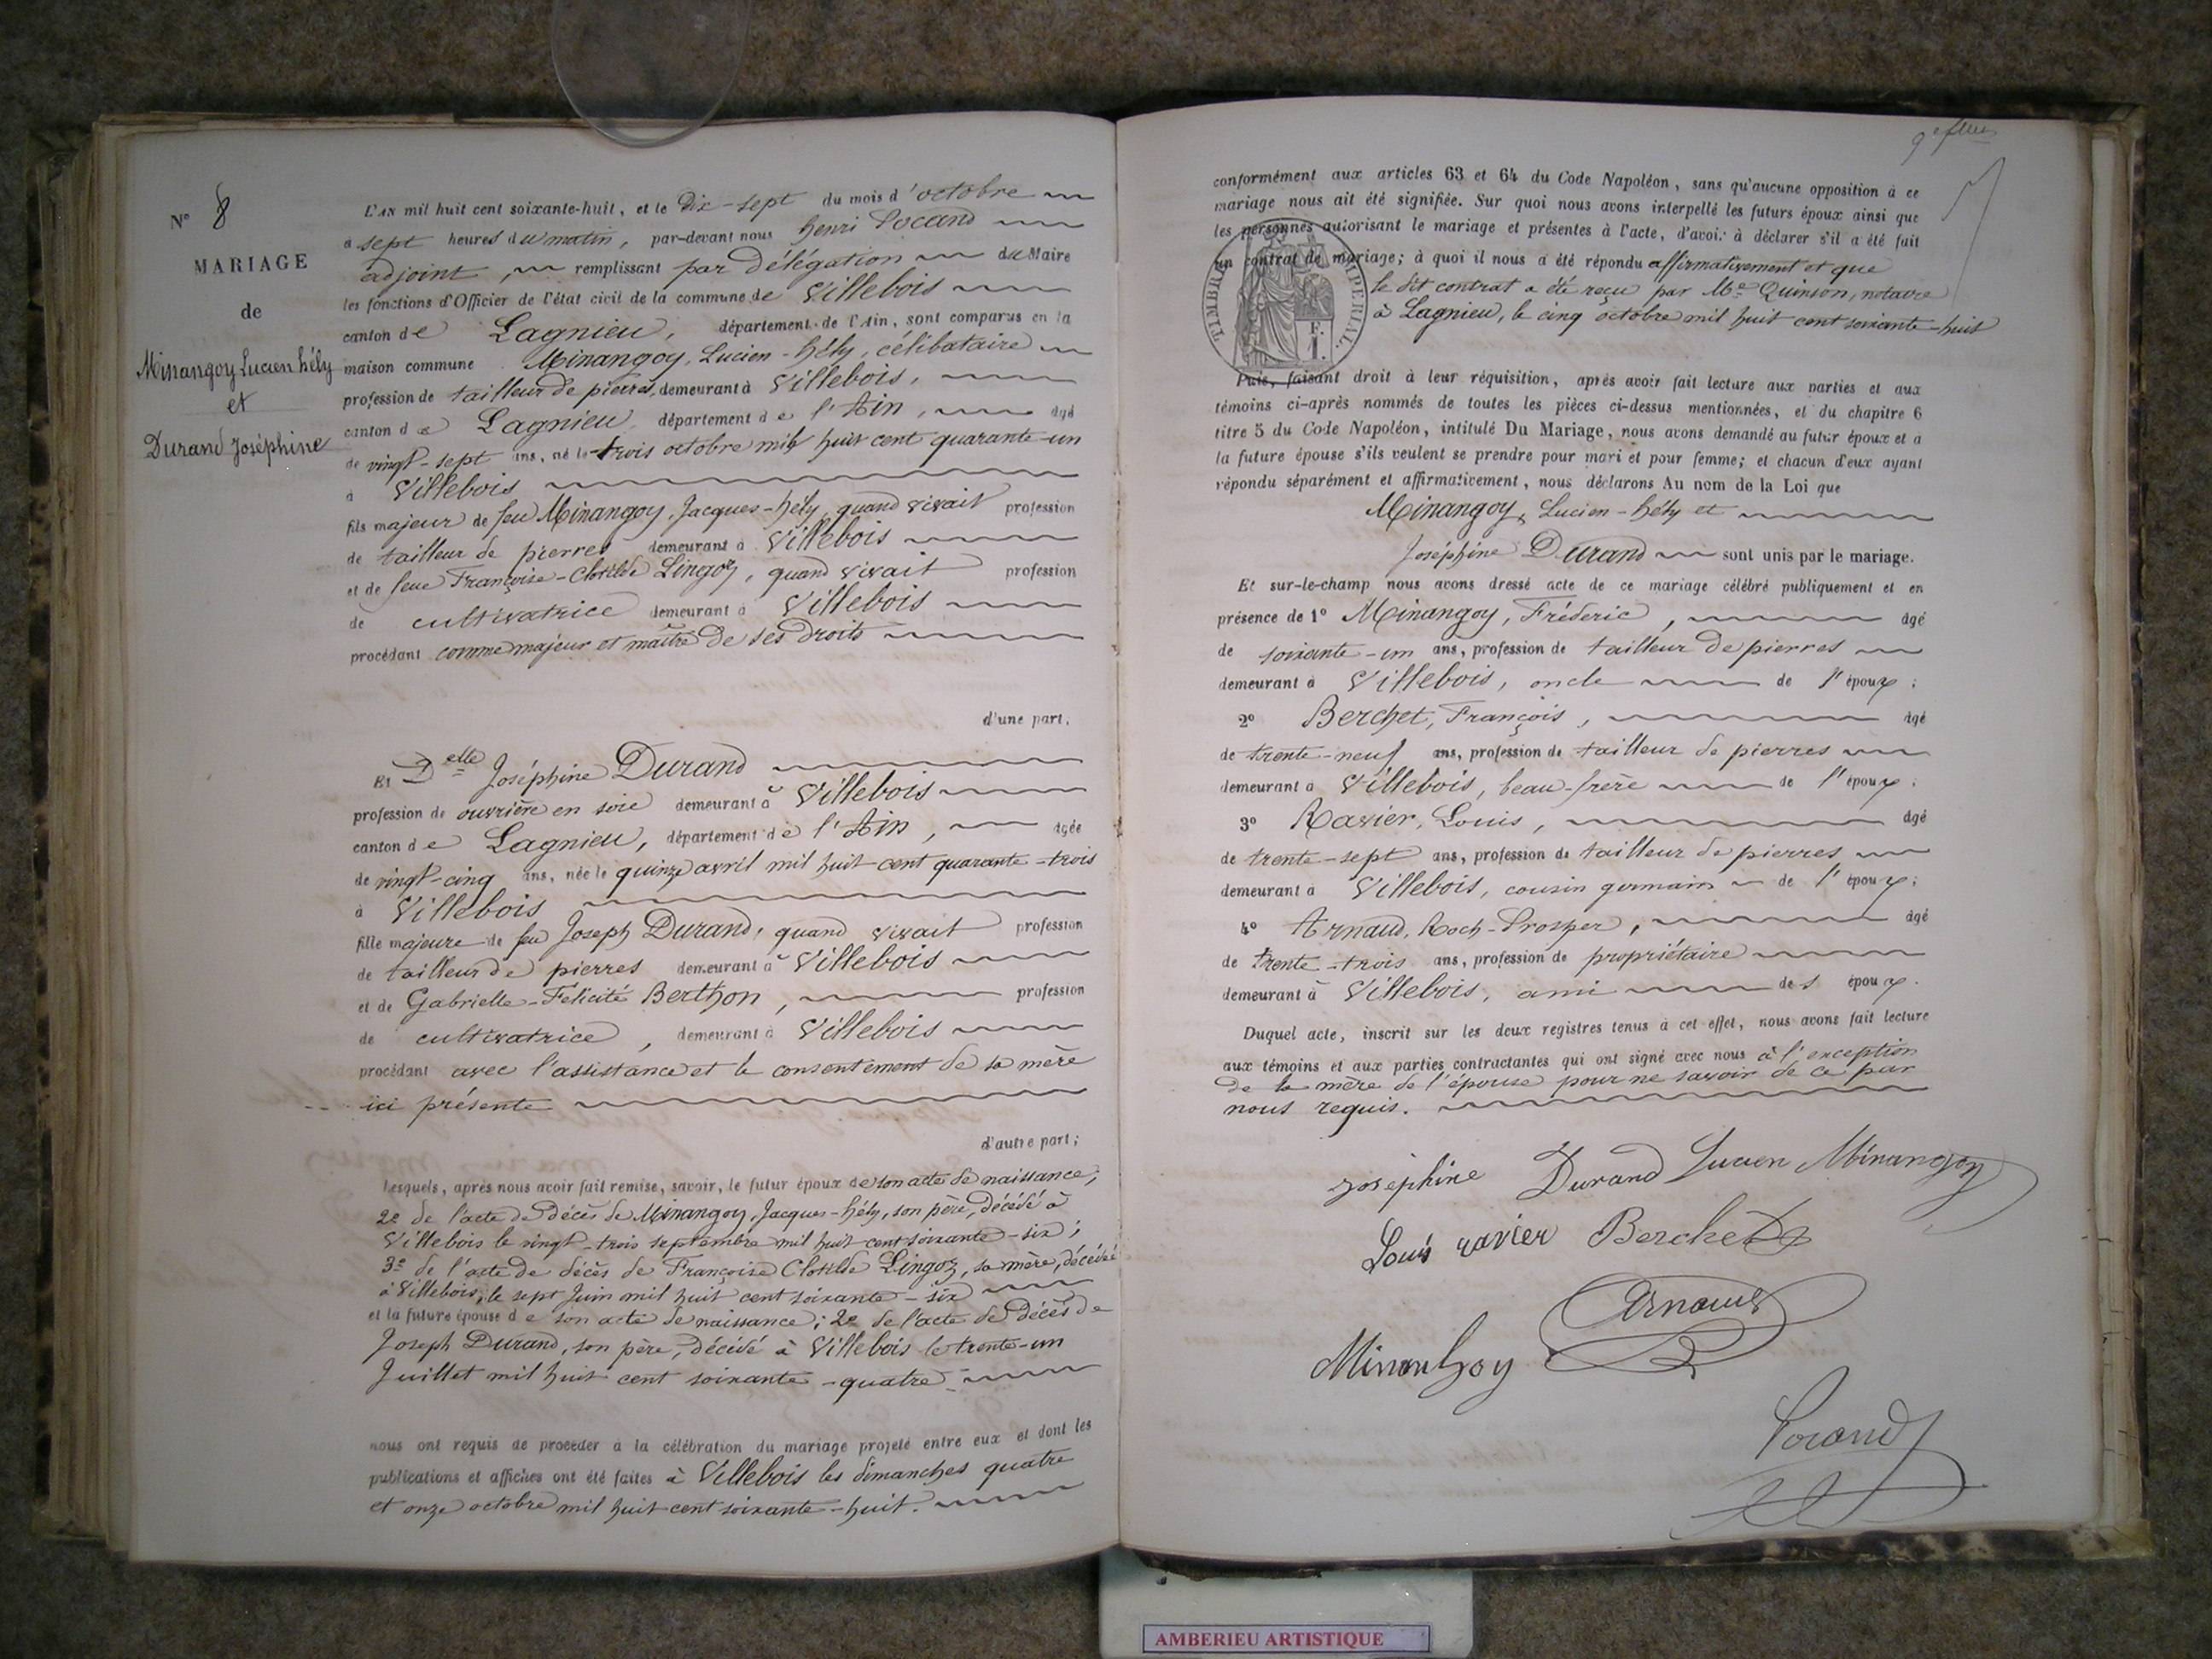 N° 8
MARIAGE
de
Minangoy Lucien hély
et
Durand Joséphine
L'AN mil huit cent soixante-huit, et le Dix-sept du mois d'octobre
à sept heures du matin, par-devant nous henri Pocand
adjoint, remplissant par délégation du Maire
les fonctions d'Officier de l'état civil de la commune de Villebois
canton de Lagnieu, département de l'Ain, sont comparus en la
maison commune Minangoy, Lucien-hély, célibataire
profession de tailleur de pierres, demeurant à Villebois,
canton de Lagnieu, département de l'Ain, âgé
de vingt-sept ans, né le trois octobre mil huit cent quarante-un
à Villebois
fils majeur de feu Minangoy, Jacques-hély, quand vivait profession
de tailleur de pierres demeurant à Villebois
et de feue Françoise-Clotilde Lingoz, quand vivait profession
de cultivatrice demeurant à Villebois
procédant comme majeur et maître de ses droits
d'une part,
Et Delle Joséphine Durand
profession de ouvrière en soie demeurant à Villebois
canton de Lagnieu, département de l'Ain, âgée
de vingt-cinq ans, née le quinze avril mil huit cent quarante-trois
à Villebois
fille majeure de feu Joseph Durand, quand vivait profession
de tailleur de pierres demeurant à Villebois
et de Gabrielle-Félicité Berthon, profession
de cultivatrice, demeurant à Villebois
procédant avec l'assistance et le consentement de sa mère
ici présente
d'autre part;
Lesquels, après nous avoir fait remise, savoir, le futur époux de son acte de naissance;
2° de l'acte de décès de Minangoy, Jacques-hély, son père, décédé à
Villebois le vingt-trois septembre mil huit cent soixante-six;
3° de l'acte de décès de Françoise Clotilde Lingoz, sa mère, décédée
à Villebois, le sept Juin mil huit cent soixante-six
et la future épouse de son acte de naissance; 2° de l'acte de décès de
Joseph Durand, son père, décédé à Villebois le trente-un
Juillet mil huit cent soixante-quatre
nous ont requis de procéder à la célébration du mariage projeté entre eux et dont les
publications et affiches ont été faites à Villebois les dimanches quatre
et onze octobre mil huit cent soixante-huit.
9e
conformément aux articles 63 et 64 du Code Napoléon, sans qu'aucune opposition à ce
mariage nous ait été signifiée. Sur quoi nous avons interpellé les futurs époux ainsi que
les personnes autorisant le mariage et présentes à l'acte, d'avoir à déclarer s'il a été fait
un contrat de mariage; à quoi il nous a été répondu affirmativement et que
le dit contrat a été reçu par Me Quinson, notaire
à Lagnieu, le cinq octobre mil huit cent soixante-huit
TIMBRE IMPERIAL
F.
1.
Puis, faisant droit à leur réquisition, après avoir fait lecture aux parties et aux
témoins ci-après nommés de toutes les pièces ci-dessus mentionnées, et du chapitre 6
titre 5 du Code Napoléon, intitulé Du Mariage, nous avons demandé au futur époux et à
la future épouse s'ils veulent se prendre pour mari et pour femme; et chacun d'eux ayant
répondu séparément et affirmativement, nous déclarons Au nom de la Loi que
Minangoy, Lucien-hély et
Joséphine Durand sont unis par le mariage.
Et sur-le-champ nous avons dressé acte de ce mariage célébré publiquement et en
présence de 1° Minangoy, Fréderic, âgé
de soixante-un ans, profession de tailleur de pierres
demeurant à Villebois, oncle de l'époux;
2° Berchet, François, âgé
de trente-neuf ans, profession de tailleur de pierres
demeurant à Villebois, beau-frère de l'époux;
3° Ravier, Louis, âgé
de trente-sept ans, profession de tailleur de pierres
demeurant à Villebois, cousin germain de l'époux;
4° Arnaud, Roch-Prosper, âgé
de trente-trois ans, profession de propriétaire
demeurant à Villebois, ami des époux.
Duquel acte, inscrit sur les deux registres tenus à cet effet, nous avons fait lecture
aux témoins et aux parties contractantes qui ont signé avec nous à l'exception
de la mère de l'épouse pour ne savoir de ce par
nous requis.
joséphine Durand Lucien Minangoy
Louis ravier Berchet
Arnaud
Minangoy
Pocand
AMBERIEU ARTISTIQUE